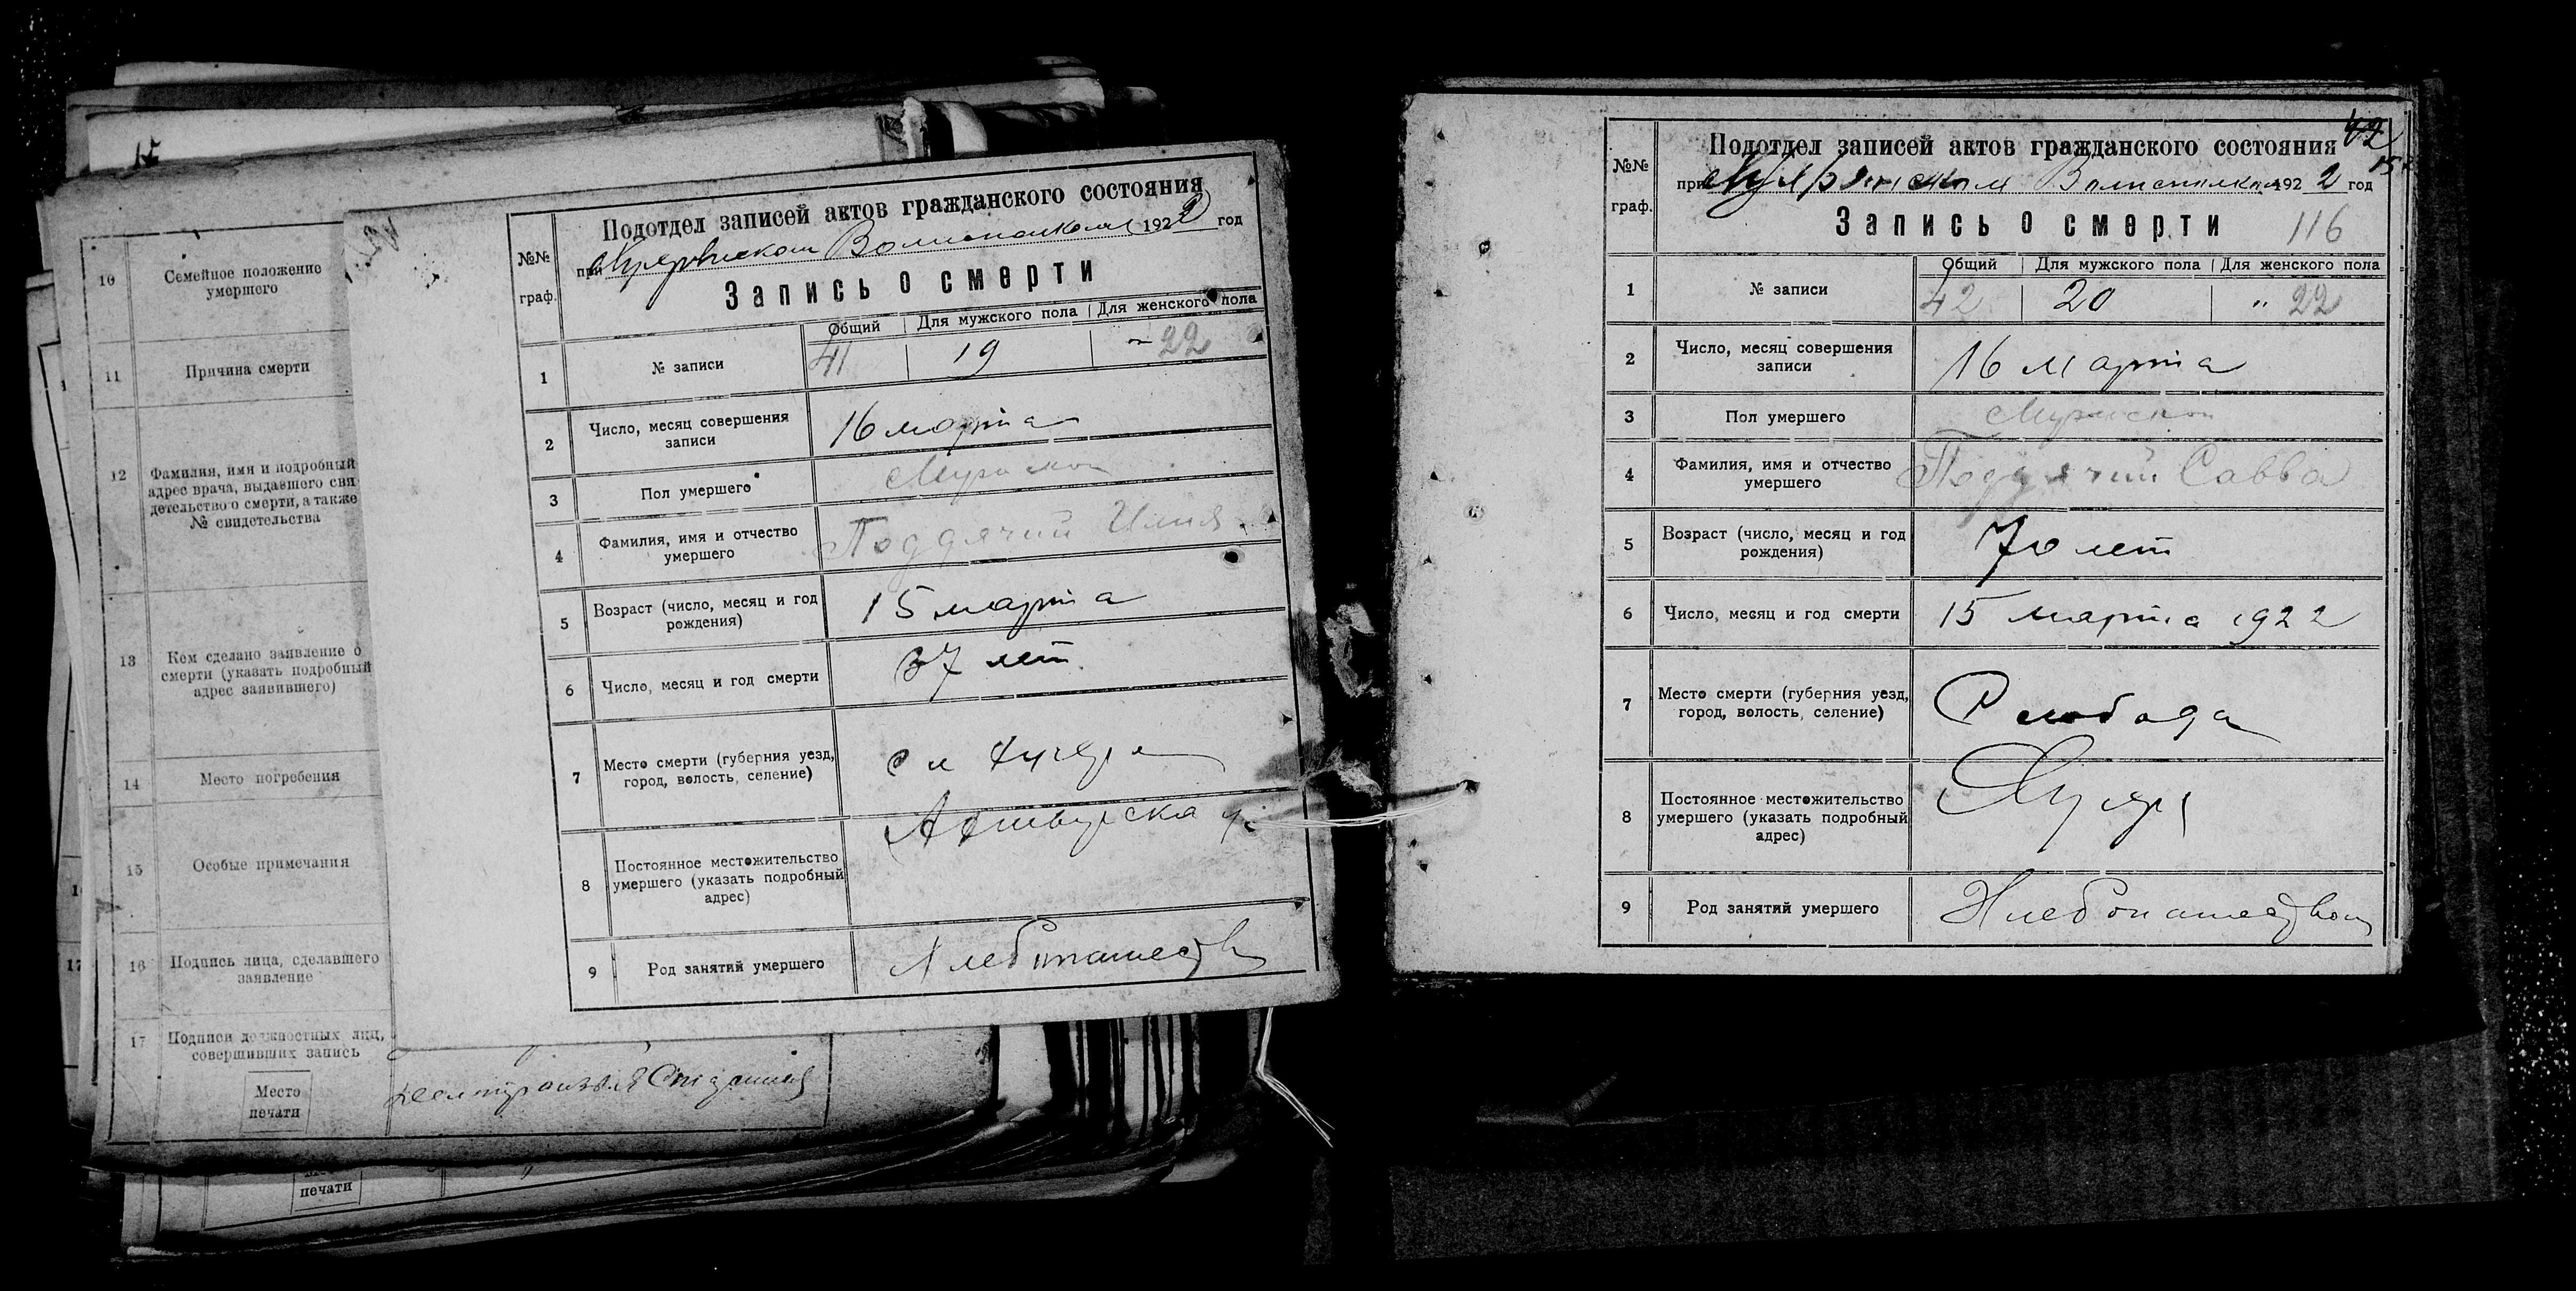 10
Семейное положение
умершего
11
Причина смерти
12
Фамилия, имя и подробный
адрес врача, выдавшего сви
детельство о смерти, а также
№ свидетельства
13
Кем сделано заявление о
смерти (указать подробный
адрес заявившего)
14
Место погребения
15
Особые примечания
16
Подпись лица, сделавшего
заявление
17
Подписи должностных лиц,
совершивших запись
Место
печати
печати
№№
граф.
Подотдел записей актов гражданского состояния
при Волисполкоме 1922 год
Запись о смерти
1
№ записи
Общий
Для мужского пола
Для женского пола
41
19
22
2
Число, месяц совершения
записи
16 марта
3
Пол умершего
Мужской
4
Фамилия, имя и отчество
умершего
Поддячий Илия
5
Возраст (число, месяц и год
рождения)
15 марта
6
Число, месяц и год смерти
37 лет
7
Место смерти (губерния уезд,
город, волость, селение)
сл
8
Постоянное местожительство
умершего (указать подробный
адрес)
9
Род занятий умершего
Хлебопашество
42
№№
граф.
Подотдел записей актов гражданского состояния
при Волисполкоме 1922 год
Запись о смерти
116
1
№ записи
Общий
Для мужского пола
Для женского пола
42
20
" 22
2
Число, месяц совершения
записи
16 марта
3
Пол умершего
Мужской
4
Фамилия, имя и отчество
умершего
Поддячий Савва
5
Возраст (число, месяц и год
рождения)
70 лет
6
Число, месяц и год смерти
15 марта 1922
7
Место смерти (губерния уезд,
город, волость, селение)
Слобода
8
Постоянное местожительство
умершего (указать подробный
адрес)
9
Род занятий умершего
Хлебопашество